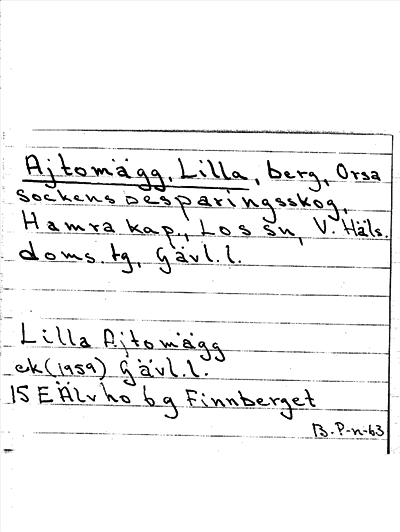 Ajtomägg, Lilla, berg, Orsa
sockens besparingsskog,
Hamra kap., Los sn, V. Häls.
doms. tg, Gävl.l.
Lilla Ajtomägg
ek (1959) Gävl.l.
15 E Älvho 6g Finnberget
B. P-n-63